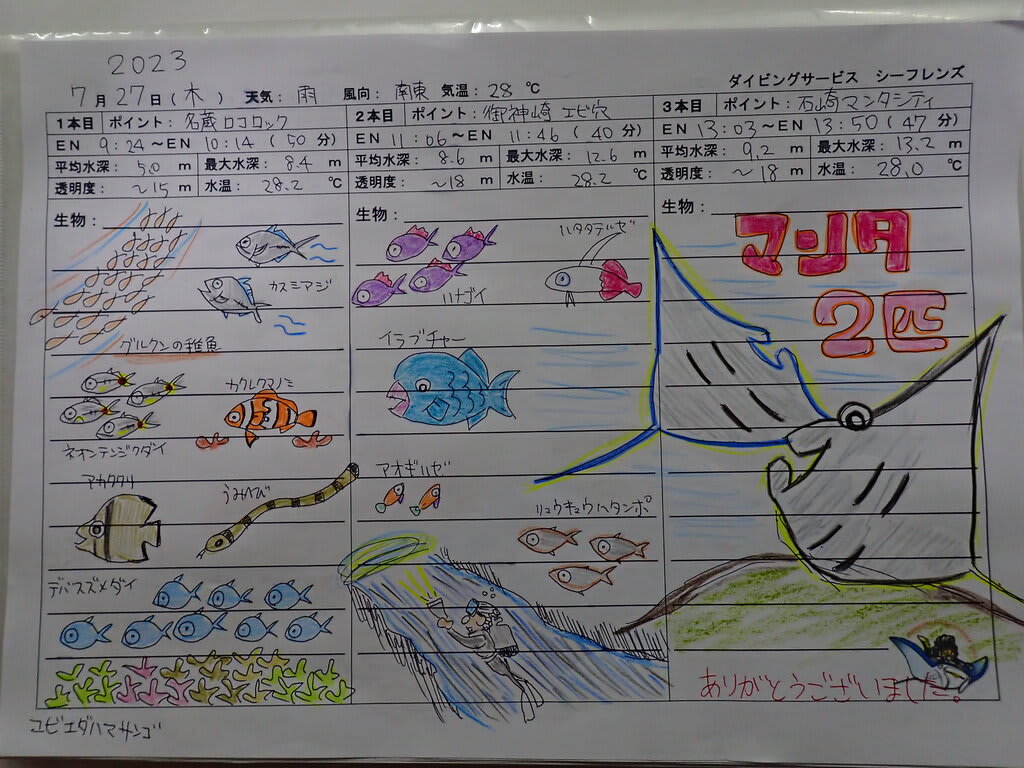 2023
7月27日(木) 天気: 雨 風向: 南東 気温: 28 ℃
ダイビングサービス シーフレンズ
1本目 ポイント: 名蔵ロコロック
EN 9:24 ~ EN 10:14 (50 分)
平均水深: 5.0 m 最大水深: 8.4 m
透明度: ~15 m 水温: 28.2 ℃
生物:
カスミアジ
グルクンの稚魚
カクレクマノミ
ネオンテンジクダイ
アカククリ
うみへび
デバスズメダイ
ユビエダハマサンゴ
2本目 ポイント: 御神崎 エビ穴
EN 11:06 ~ EN 11:46 (40 分)
平均水深: 8.6 m 最大水深: 12.6 m
透明度: ~18 m 水温: 28.2 ℃
生物:
ハタタテハゼ
ハナゴイ
イラブチャー
アオギハゼ
リュウキュウハタンポ
3本目 ポイント: 石崎マンタシティ
EN 13:03 ~ EN 13:50 (47 分)
平均水深: 9.2 m 最大水深: 13.2 m
透明度: ~18 m 水温: 28.0 ℃
生物:
マンタ
2匹
ありがとうございました。